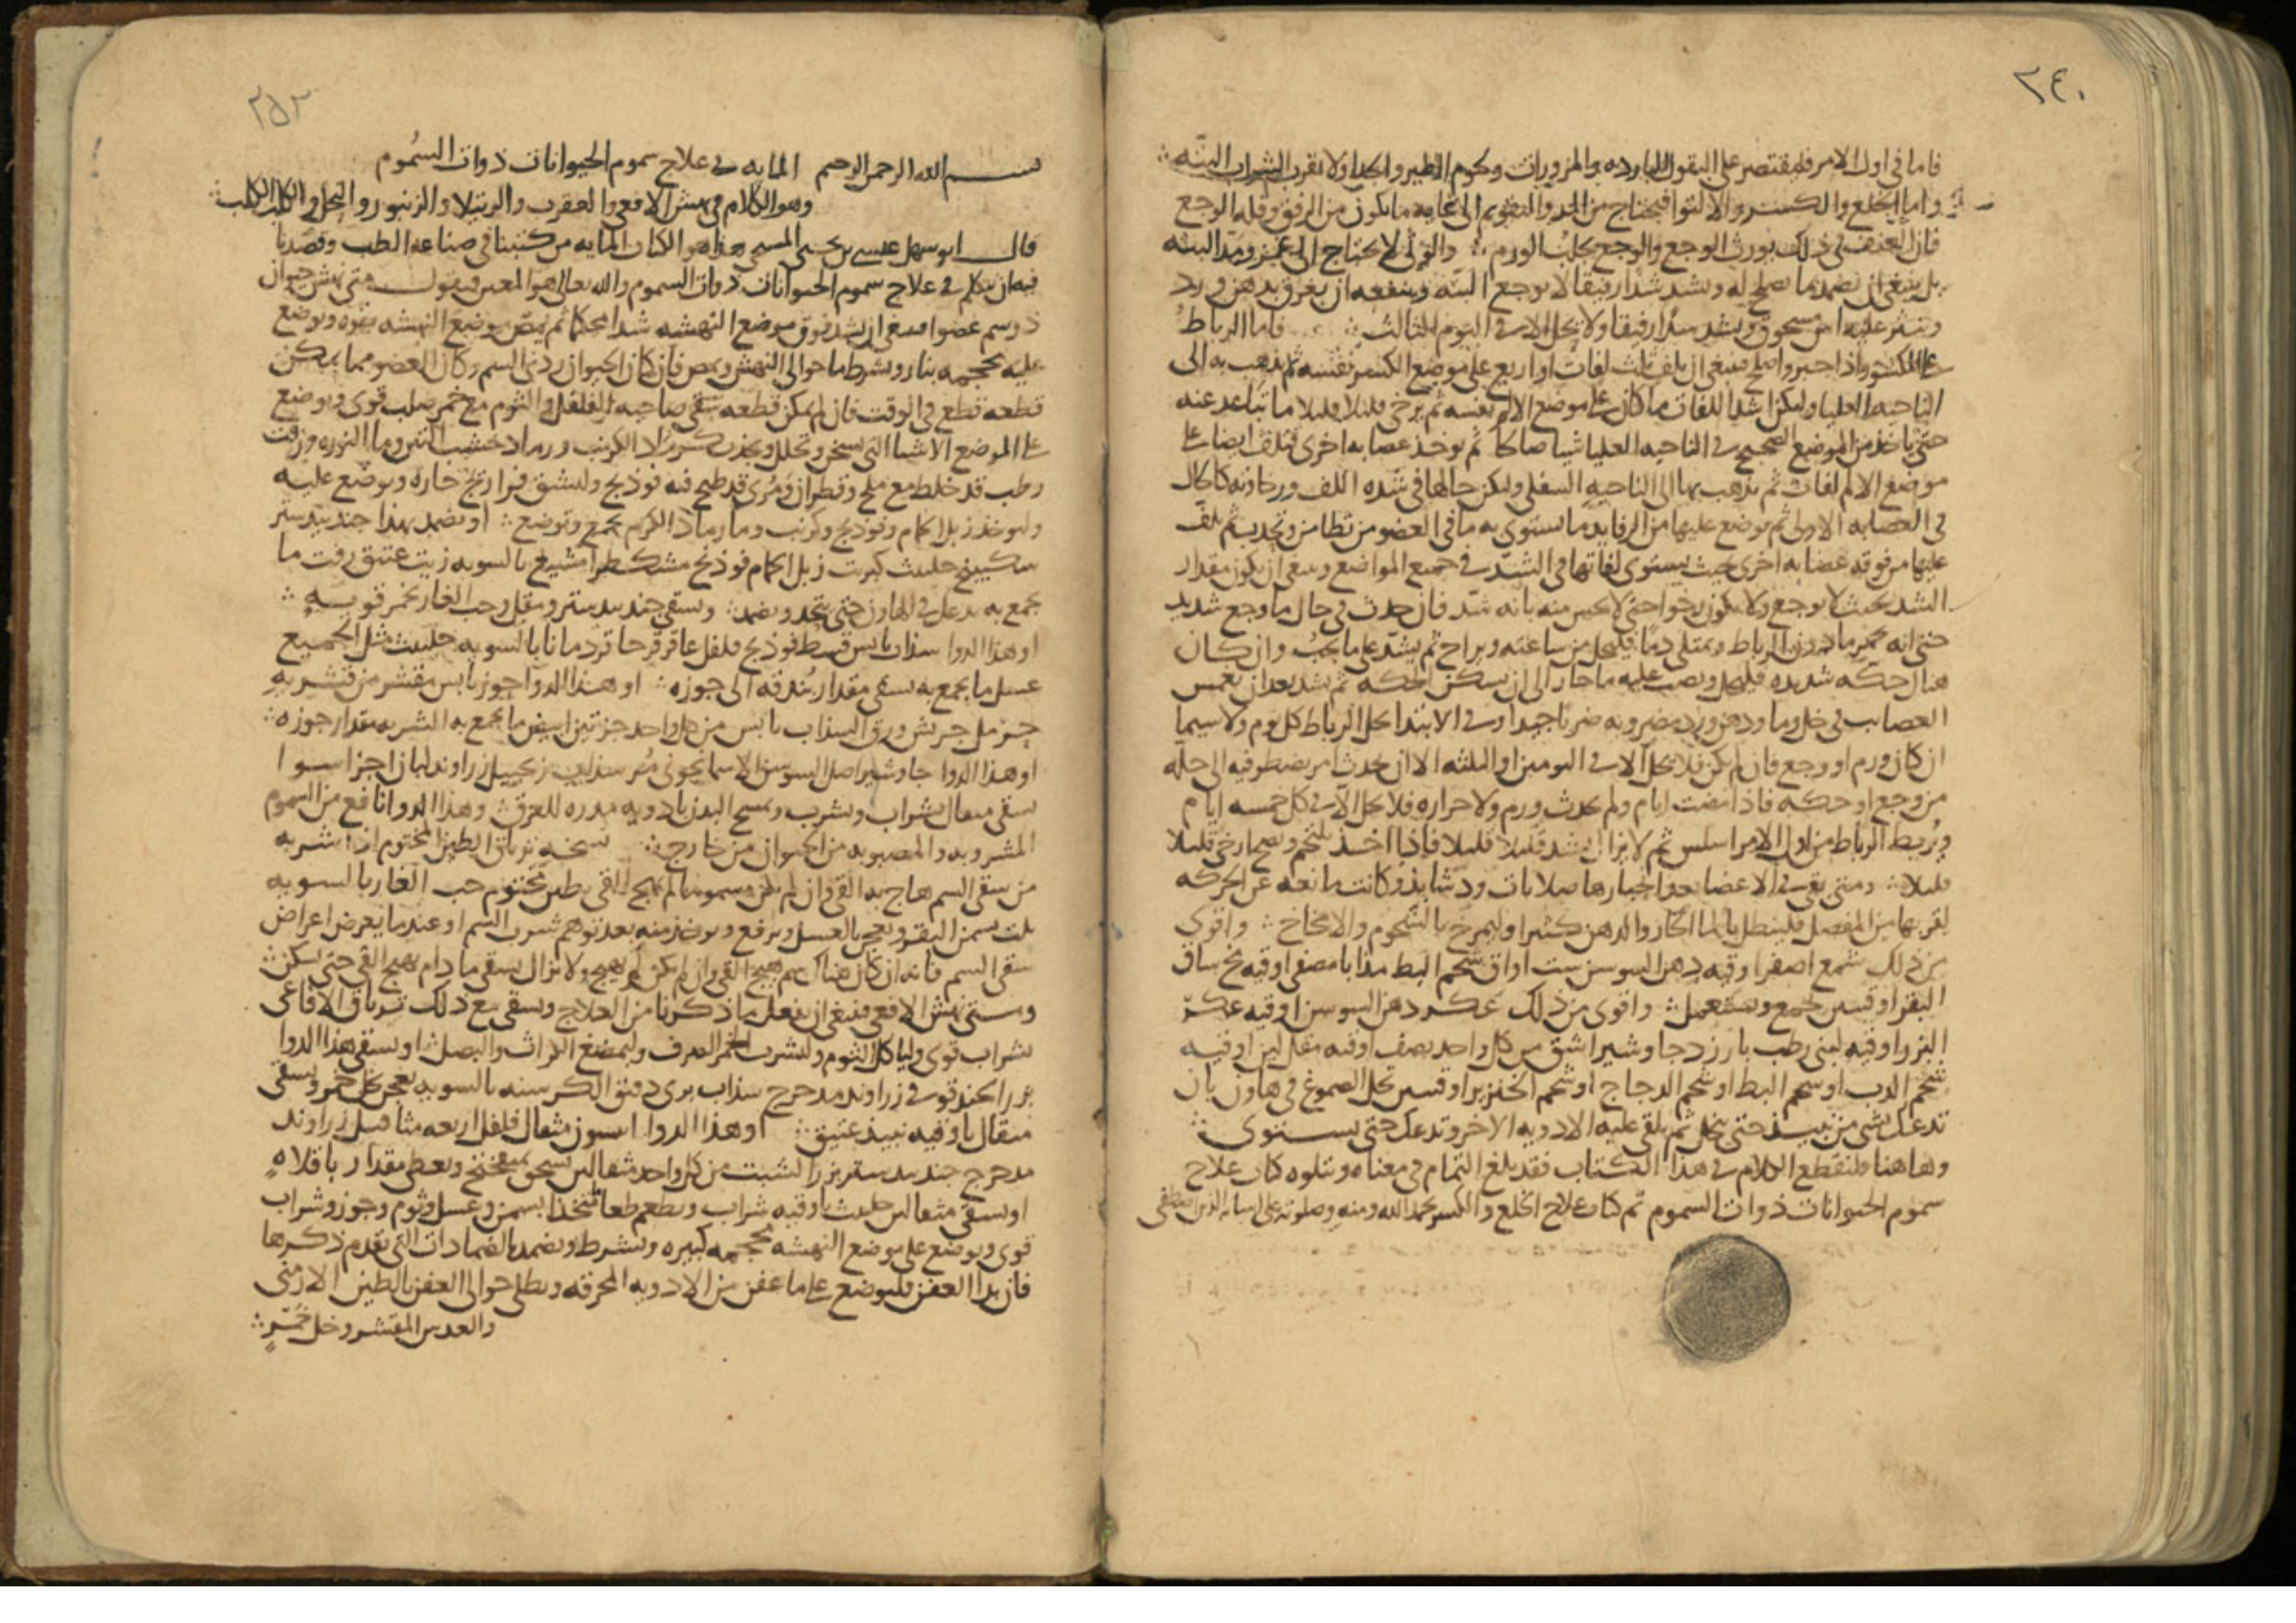 ٢٤٠
فاما في اول الامر فليقتصر على البقول الباردة والمزورات ولحوم الطير والجدا ولا يقرب الشراب البتة
واما الخلع والكسر والالتوا فيحتاج من المد والتقويم الى غايه ما يكون من الرفق وقله الوجع
فان العنف في ذلك يورث الوجع والوجع يجلب الورم والوثى لا يحتاج الى غمز ومد البته
بل ينبغي ان يضمد بما يصلح له ويشد شدا رفيقا لا يوجع البته وينفعه ان يعرق بدهن ورد
وينثر عليه اس مسحوق ويشد شدا رفيقا ولا يحل الا في اليوم الثالث فاما الرباط
على المكسور اذا جبر واصلح فينبغي ان يلف ثلث لفات او اربع على موضع الكسر نفسه ثم يذهب به الى
الناحيه العليا وليكن اشد اللفات ما كان على موضع الالم نفسه ثم يرخى قليلا قليلا ما تباعد عنه
حتى ياخذ من الموضع الصحيح في الناحيه العليا شيا صالحا ثم يوخذ عصابه اخرى فتلف ايضا على
موضع الالم لفات ثم يذهب بها الى الناحيه السفلى وليكن حالها في شده اللف ورخاوته كالحال
في العصابه الاولى ثم يوضع عليها من الرفايد ما يستوي به ما في العضو من تطامن وتحديب ثم يلف
عليها من فوقه عصابه اخرى بحيث يستوي لفاتها في الشد في جميع المواضع وينبغي ان يكون مقدار
الشد بحيث لا يوجع ولا يكون رخوا حتى لا يحس منه بانه شد فان حدث في حال ما وجع شديد
حتى انه يحمر ما دون الرباط ويمتلى دما فليحل من ساعته ويراح ثم يشد على ما يجب وان كان
هناك حكه شديده فليحل ويصب عليه ما حار الى ان يسكن الحكه ثم يشد بعد ان يغمس
العصايب في خل وما ودهن ورد مضروبه ضربا جيدا وفي الابتدا يحل الرباط كل يوم ولا سيما
ان كان ورم او وجع فان لم يكن فلا يحل الا في اليومين او الثلثه الا ان يحدث امر يضطر فيه الى حله
من وجع او حكه فاذا مضت ايام ولم يحدث ورم ولا حراره فلا يحل الا في كل خمسه ايام
ويربط الرباط من اول الامر اسلس ثم لا يزال يشد قليلا قليلا فاذا اخذ يلتحم ويصح ارخي قليلا
قليلا ومتى بقي في الاعضا بعد انجبارها صلابات ودشابذ وكانت مانعه عن الحركه
لقربها من المفصل فلينطل بالما الحار والدهن كثيرا وليمرخ بالشحوم والامخاخ واقوى
من ذلك شمع اصفر اوقيه دهن السوسن ست اواق شحم البط مذابا مصفى اوقيه مخ ساق
البقر اوقيتين يجمع ويستعمل واقوى من ذلك عكر دهن السوسن اوقيه عكر
البزر اوقيه لبنى رطب بارزد جاوشير اشق من كل واحد نصف اوقيه مقل لين اوقيه
شحم الدب او شحم البط او شحم الدجاج او شحم الخنزير اوقيتين يحل الصموغ في هاون بان
تدعك بشي من نبيذ حتى ينحل ثم يلقى عليه الادويه الاخر وتدعك حتى يستوي
وهاهنا فلنقطع الكلام في هذا الكتاب فقد بلغ التمام في معناه ويتلوه كتاب علاج
سموم الحيوانات ذوات السموم تم كتاب علاج الخلع والكسر بحمد الله ومنه وصلوته على انبيائه الذين اصطفى
٢٥٢
بسم الله الرحمن الرحيم المايه في علاج سموم الحيوانات ذوات السموم
وهو الكلام في نهش الافعى والعقرب والرتيلا والزنبور والنحل والكلب الكلب
قال ابو سهل عيسى بن يحيى المسيحي هذا هو الكتاب المايه من كتبنا في صناعه الطب وقصدنا
فيه ان نتكلم في علاج سموم الحيوانات ذوات السموم والله تعالى هو المعين فنقول متى نهش حيوان
ذو سم عضوا فينبغي ان يشد فوق موضع النهشه شدا محكما ثم يمص موضع النهشه بقوه ويوضع
عليه محجمه بنار ويشرط ما حوالي النهش ويمص فان كان الحيوان ردي السم وكان العضو مما يمكن
قطعه قطع في الوقت فان لم يمكن قطعه سقي صاحبه الفلفل والثوم مع خمر صلب قوي ويوضع
على الموضع الاشيا التي تسخن وتحلل وتجذب مثلا الكرنب ورماد خشب التين وما النوره وزفت
رطب قد خلط مع ملح وقطران ومري قد طبخ فيه فوذنج ولتشق فراريج حاره ويوضع عليه
وليوخذ زبل الحمام وفوذنج وكرنب وما رماد الكرم يجمع ويوضع او يضمد بهذا جندبيدستر
سكبينج حلتيت كبريت زبل الحمام فوذنج مشكطرامشيع بالسويه زيت عتيق زفت ما
يجمع به يدعك في الهاون حتى يتحد ويضمد ويسقى جندبيدستر ومقل وحب الغار بخمر قويه
او هذا الدوا سذاب يابس قسط فوذنج فلفل عاقرقرحا قردمانا بالسويه حلتيت مثل الجميع
عسل ما يجمع به يسقى مقدار بندقه الى جوزه او هذا الدوا جوز يابس مقشر من قشريه
جز ملح جريش ورق السذاب يابس من كل واحد جز تين ابيض ما يجمع به الشربه مقدار جوزه
او هذا الدوا جاوشير اصل السوسن الاسمانجوني مر سذاب زنجبيل زراوند لبان اجزا سوا
يسقى مثقال بشراب ويشرب ويمسح البدن بادويه مدره للعرق وهذا الدوا نافع من السموم
المشروبه والمصبوبه من الحيوان من خارج نسخه ترياق الطين المختوم اذا شربه
من سقي السم هاج به القي وان لم يكن مسموما لم يهج القي طين مختوم حب الغار بالسويه
يلت بسمن البقر ويعجن بالعسل ويرفع ويوخذ منه بعد توهم شرب السم او عندما يعرض اعراض
سقي السم فانه ان كان هناك سم هيج القي وان لم يكن لم يهيج ولا يزال يسقى ما دام يهيج القي حتى يسكن
ومتى نهش الافعى فينبغي ان يفعل ما ذكرنا من العلاج ويسقى مع ذلك ترياق الافاعي
بشراب قوي ولياكل الثوم وليشرب الخمر الصرف وليمضغ الكراث والبصل او يسقى هذا الدوا
بزر الحندقوقى زراوند مدحرج سذاب بري دقيق الكرسنه بالسويه يعجن بخل خمر ويسقى
مثقال باوقيه نبيذ عتيق او هذا الدوا انيسون مثقال فلفل اربعه مثاقيل زراوند
مدحرج جندبيدستر بزر الشبت من كل واحد مثقالين يسحق بميفختج ويعطى مقدار باقلاه
او يسقى مثقالين حلتيت باوقيه شراب ويطعم طعاما متخذا بسمن وعسل وثوم وجوز وشراب
قوي ويوضع على موضع النهشه محجمه كبيره ويشرط ويضمد بالضمادات التي تقدم ذكرها
فان بدا العفن فليوضع على ما عفن من الادويه المحرقه ويطلى حوالي العفن بالطين الارمني
والعدس المقشر وخل خمر